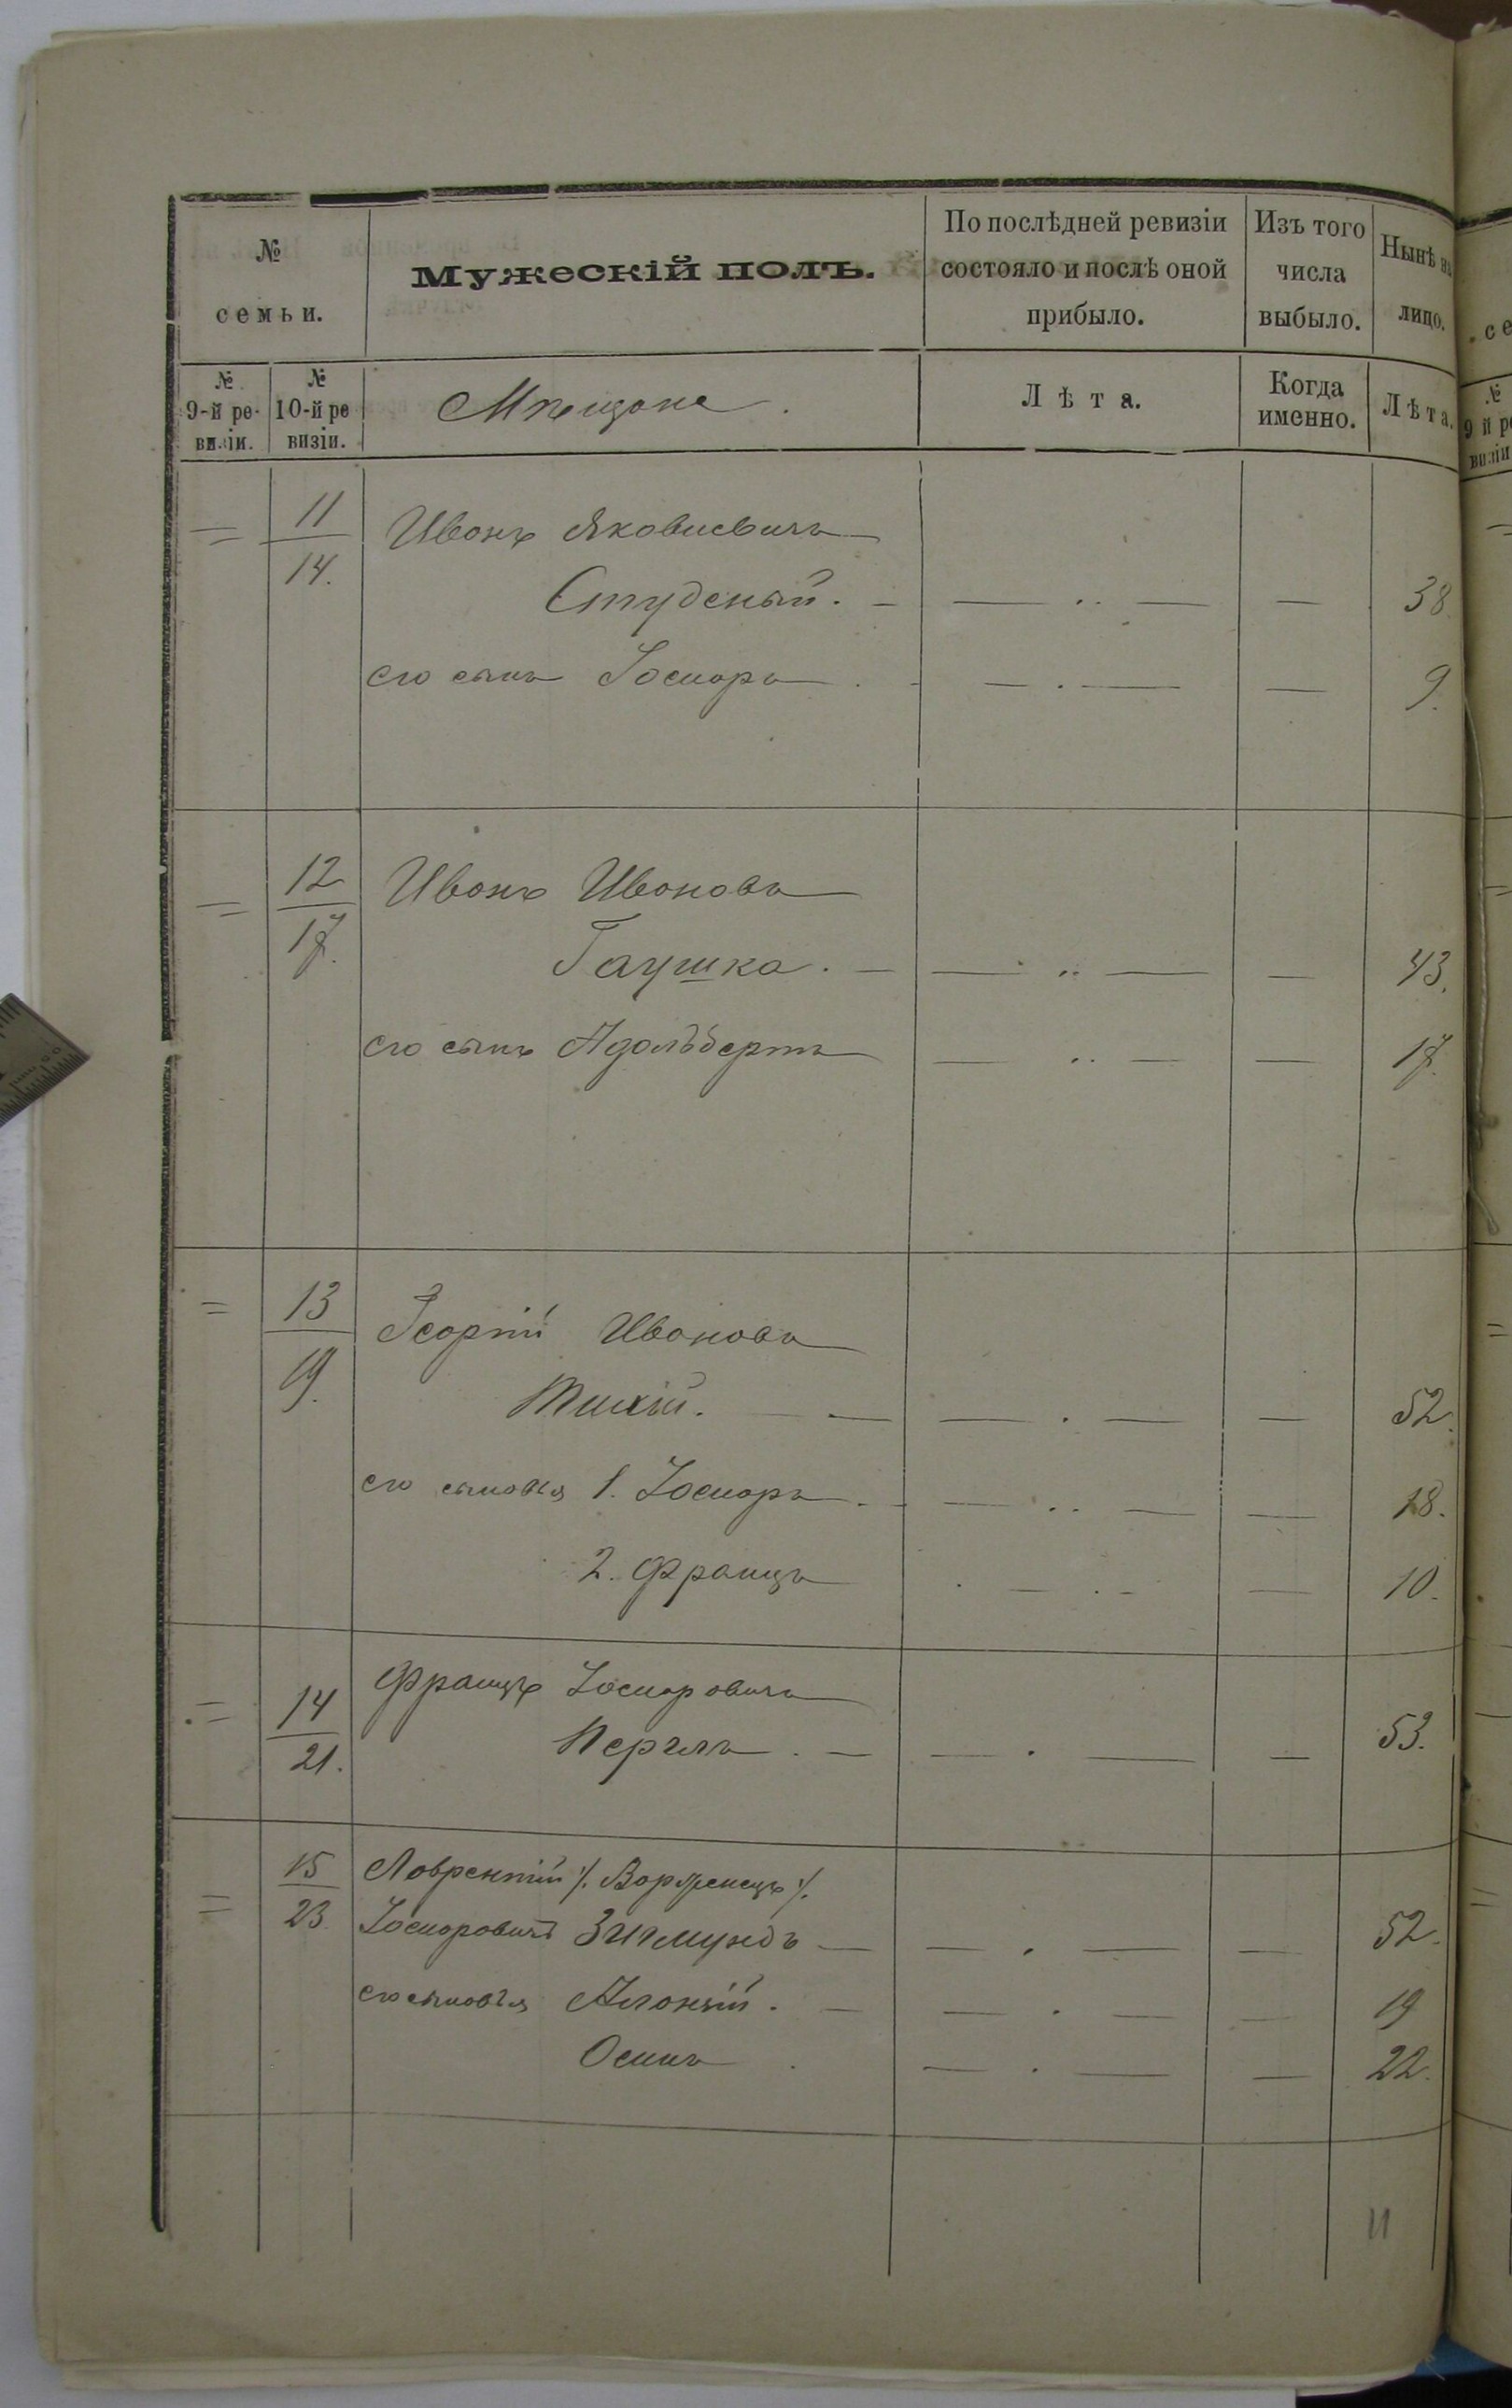 №
семьи.
Мужескій полъ.
По послѣдней ревизіи
состояло и послѣ оной
прибыло.
Изъ того
числа
выбыло.
Нынѣ на
лицо.
№
9-й ре-
визіи.
№
10-й ре
визіи.
Мѣщане.
Лѣта.
Когда
именно.
Лѣта.
11
14.
Иванъ Яковлевичъ
Студеный. 38
его сынъ Іосифъ 9.
12
17.
Иванъ Ивановъ
Гаушка. 43.
его сынъ Адольбертъ 17.
13
19.
Георгій Ивановъ
Тихій. 52.
его сыновья 1. Іосифъ 18.
2. Францъ 10.
14
21.
Францъ Іосифовичъ
Перглъ 53.
15
23.
Лаврентій /. Вавренецъ /.
Іосифовичъ Зигмундъ 52.
его сыновья Алоизій. 19
Осипъ 22.
11
се
№
9 й ре
визіи